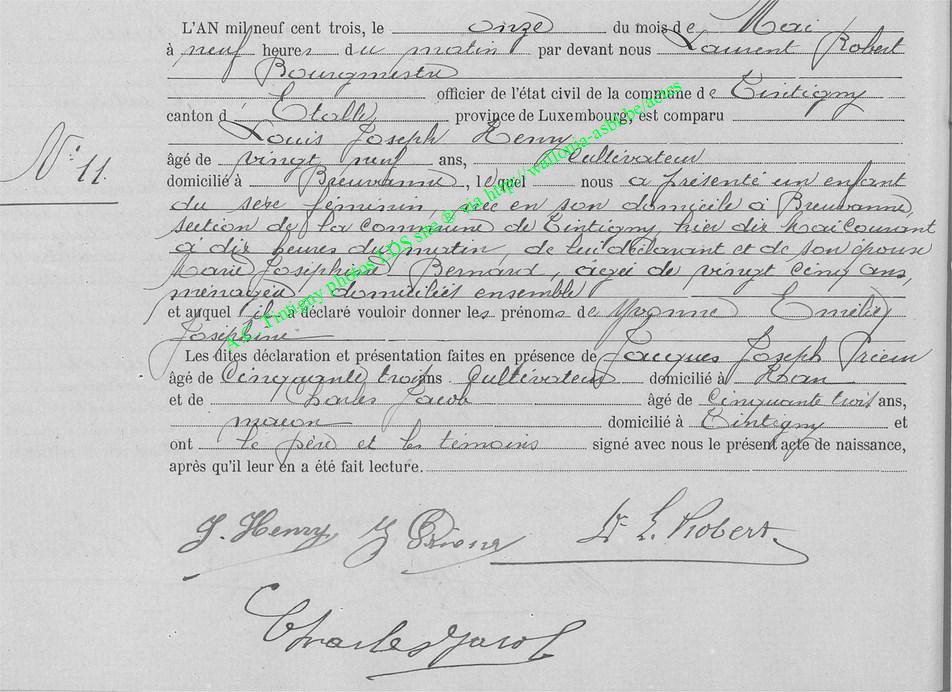 L'AN mil neuf cent trois, le onze du mois de Mai
à neuf heures du matin par devant nous Laurent Robert
Bourgmestre
officier de l'état civil de la commune de Tintigny
canton d'Etalle province de Luxembourg, est comparu
Louis Joseph Henry
N° 11.
âgé de vingt neuf ans, Cultivateur
domicilié à Breuvanne, lequel nous a présenté un enfant
du sexe féminin, née en son domicile à Breuvanne,
section de la commune de Tintigny, hier dix Mai courant
à dix heures du matin, de lui déclarant et de son épouse
Marie Joséphine Bernard, âgée de vingt cinq ans,
ménagère, domiciliés ensemble
et auquel il a déclaré vouloir donner les prénoms de Yvonne Emélie
Joséphine
Les dites déclaration et présentation faites en présence de Jacques Joseph
âgé de Cinquante trois ans Cultivateur domicilié à
et de Charles Jacob âgé de Cinquante trois ans,
maçon domicilié à Tintigny et
ont le père et les témoins signé avec nous le présent acte de naissance,
après qu'il leur en a été fait lecture.
J. Henry J Dr L. Robert.
Charles Jacob
A.E. Tintigny photos LDS site © via http://wallonia-asbl.be/actes